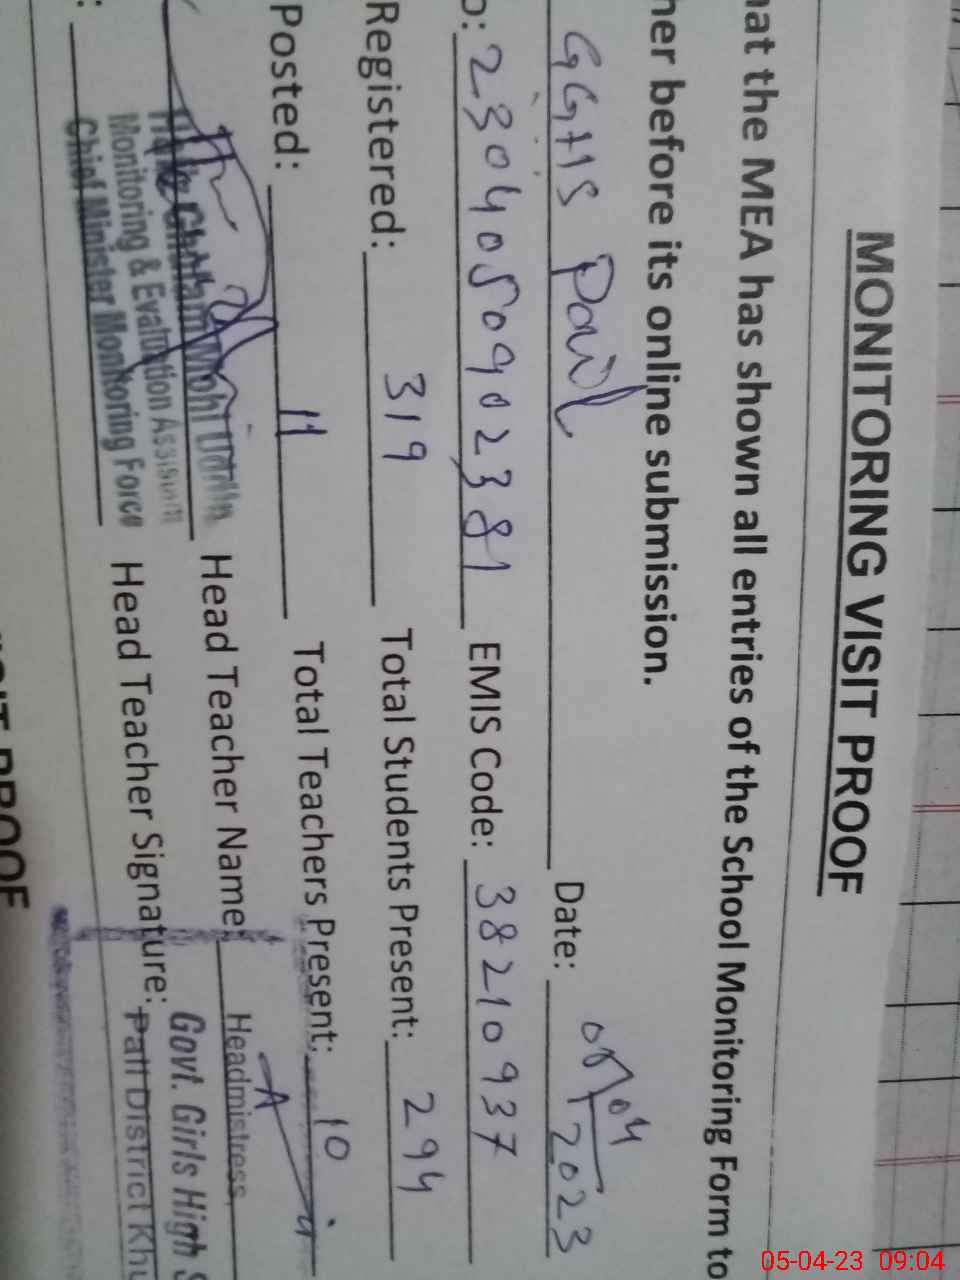 MONITORING VISIT PROOF
hat the MEA has shown all entries of the School Monitoring Form to
her before its online submission.
GGHS Pail Date: 05/04/2023
o: 2304050902381 EMIS Code: 38210937
Registered: 319 Total Students Present: 294
Posted: 11 Total Teachers Present: 10
Head Teacher Name: Headmistress,
Monitoring & Evaluation Assistant Govt. Girls High S
Chief Minister Monitoring Force Head Teacher Signature: Pail District Khu
05-04-23 09:04